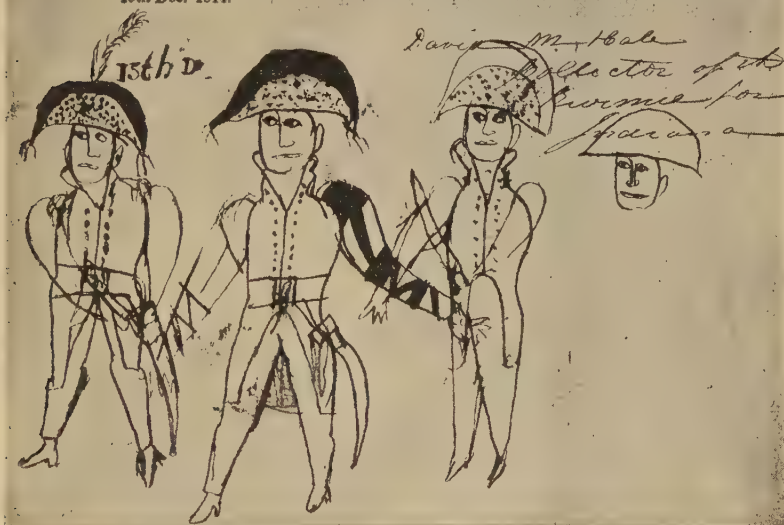 15th Dec. 1814.
15th D.
David M. Hale
Collector of the
Revenue for
Indiana